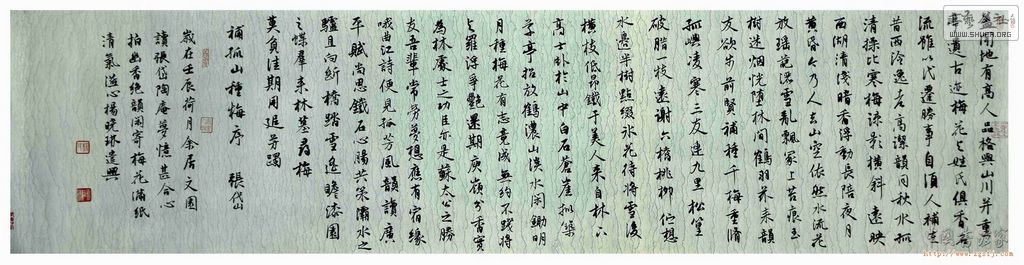 盖闻地有高人品格與山川并重
亭遺古迹梅花與姓氏俱香名
流雖以代遷勝事自須人補在
昔西泠逸老高潔韻同秋水孤
清操比寒梅疎影横斜遠映
西湖清淺暗香浮動長陪夜月
黄昏今乃人去山空依然水流花
放瑶葩洒雪亂飄冢上苔痕玉
樹迷烟恍墮林间鶴羽兹来韻
友欲步前賢補種千梅重脩
孤嶼凌寒三友連九里松篁
破腊一枝遠謝六橋桃柳伫想
水邊半樹點綴冰花待將雪後
横枝低昂鐵干美人来自林下
高士卧於山中白石蒼崖拟築
草亭招放鶴濃山淡水闲鋤明
月種梅花有志竟成無約不践將
與羅浮争艷還期庾嶺分香實
為林處士之功臣亦是蘇太公之勝
友吾輩常劳夢想應有宿缘
哦曲江詩便見孤芳風韻讀廣
平賦尚思鐵石心腸共策灞水之
驢且向断橋踏雪遥瞻漆園
之蝶群来林墓尋梅
莫負佳期用追芳躅
補孤山種梅序 張岱
歲在壬辰荷月余居文園
讀張岱陶庵夢憶甚合心
拍幽香絶韻闲寄梅花滿紙
清氣溢心楊曉琳遣興
WWW.SHUFA.ORG
http://www.zgsfj.com